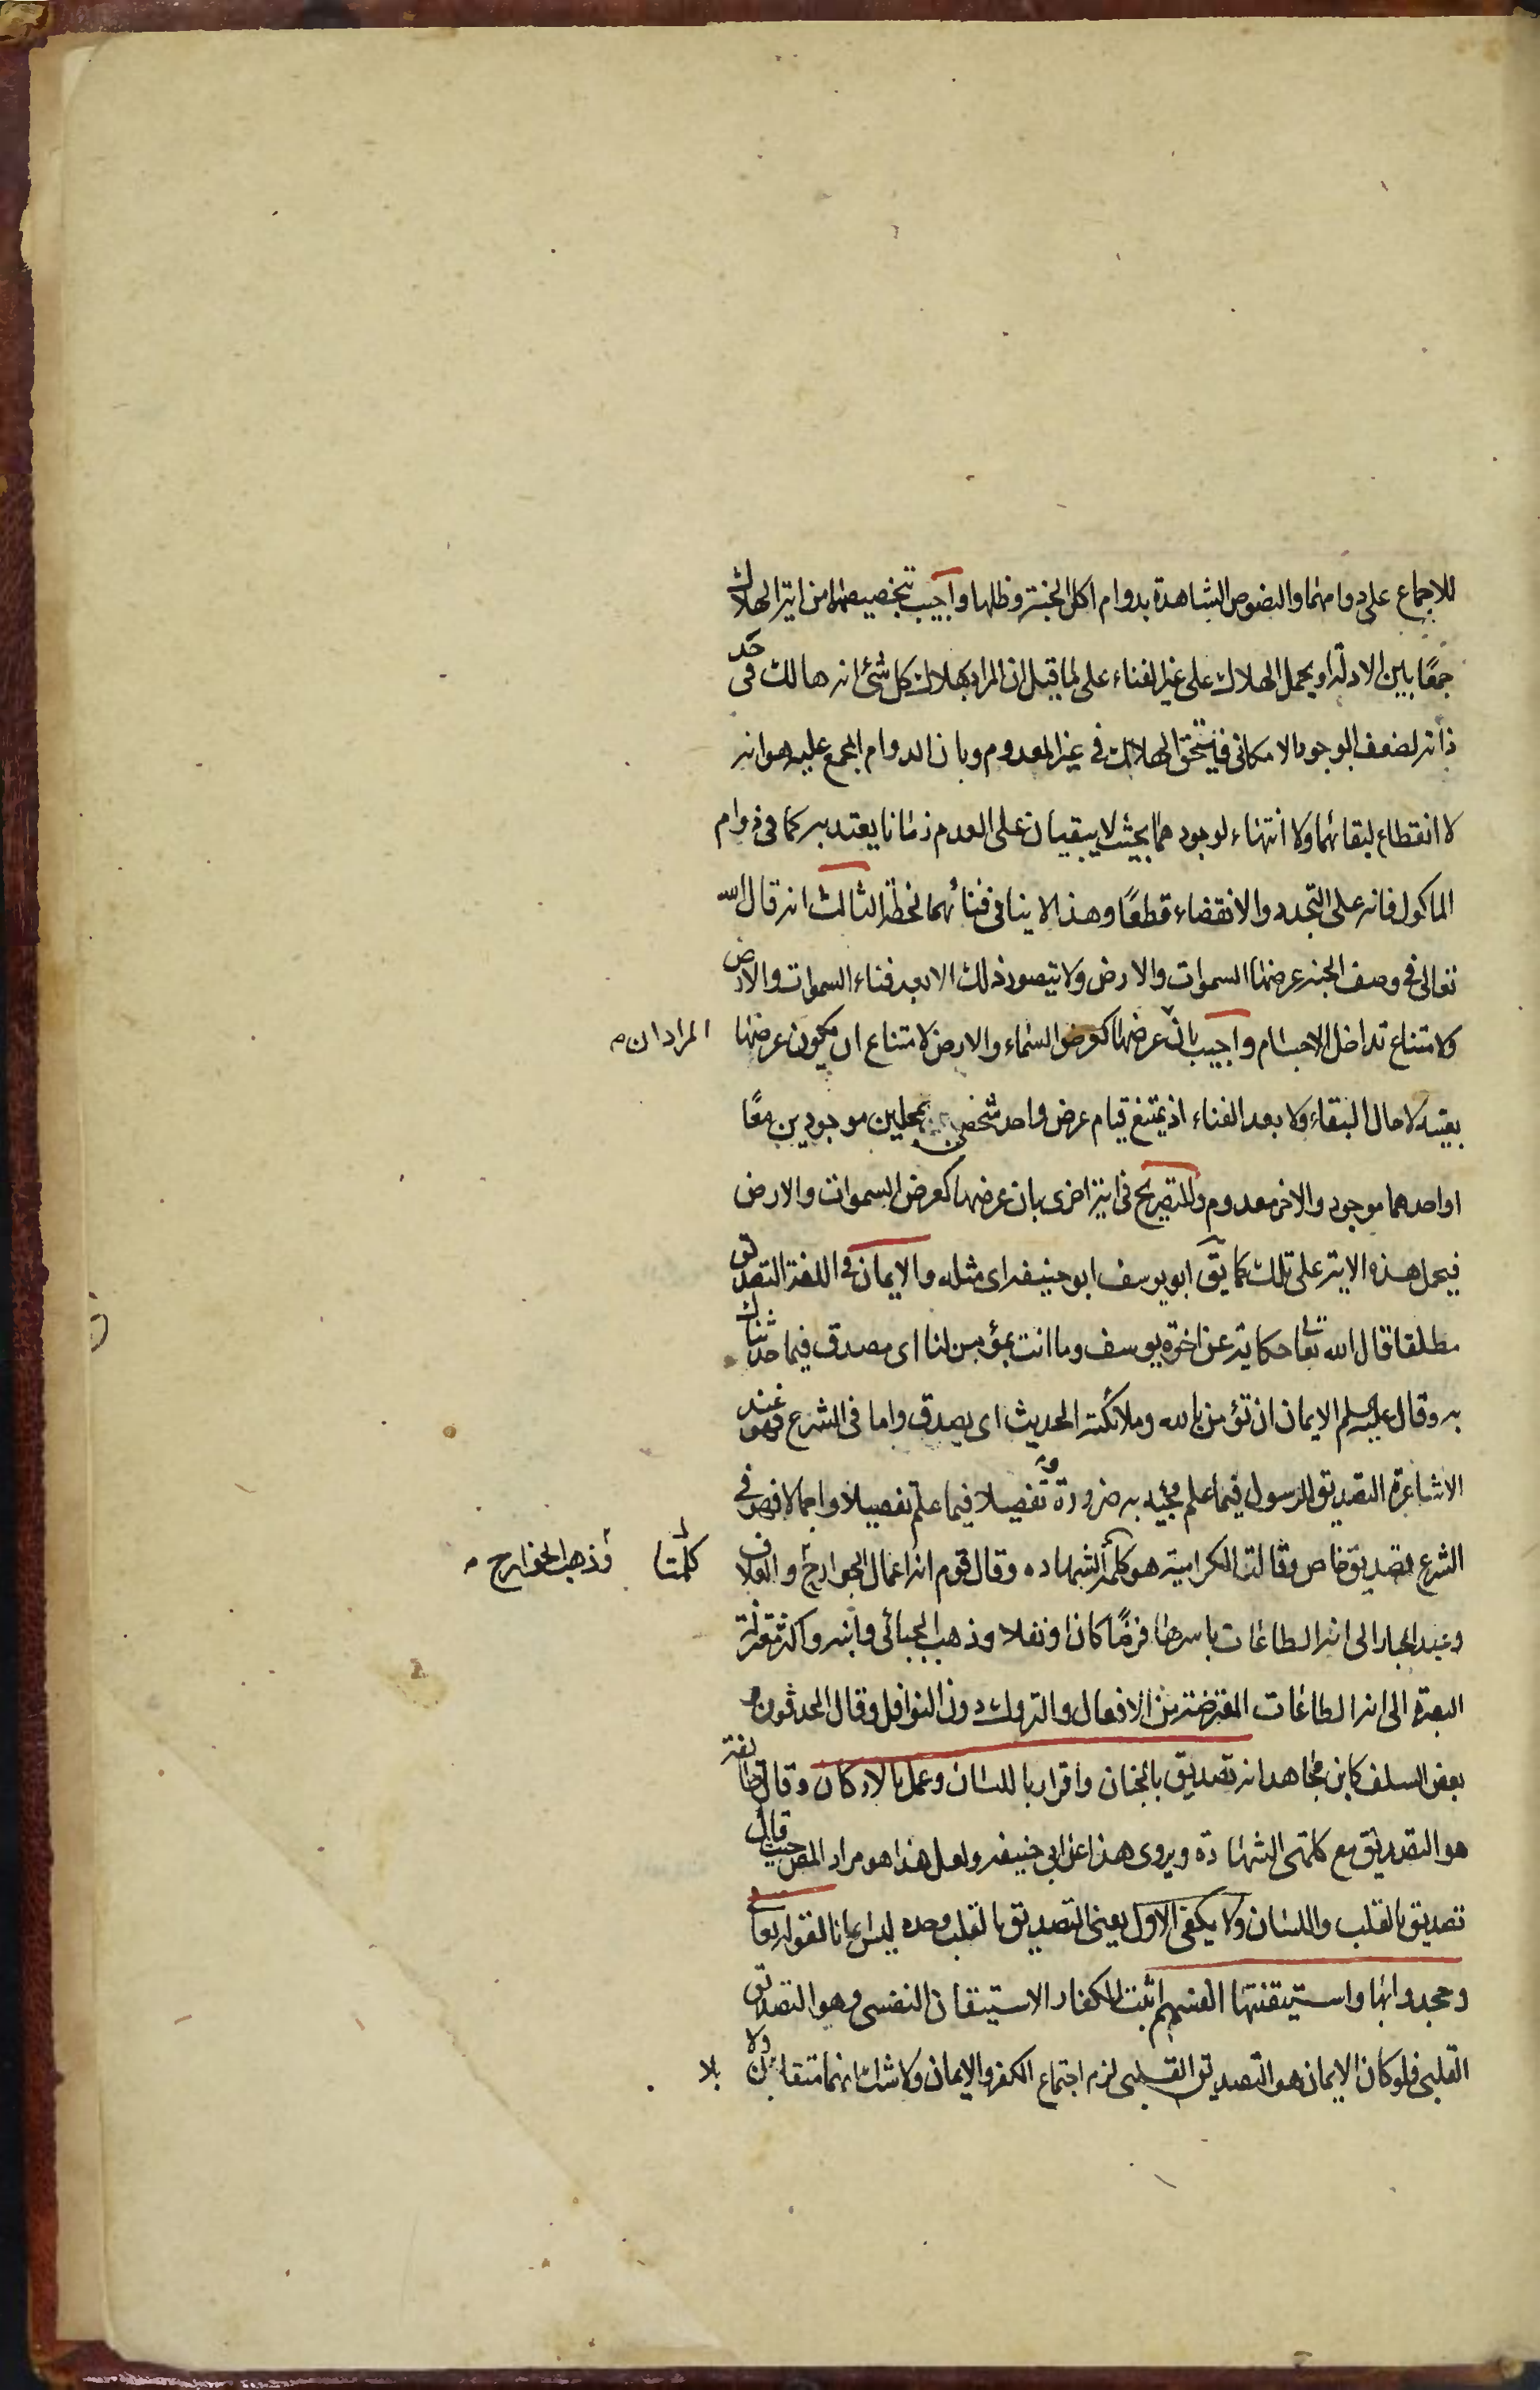 للاجماع على دوامهما والنصوص الشاهدة بدوام اكل الجنة وظلها واجيب بتخصيصهما من اية الهلاك
جمعًا بين الادلة او بحمل الهلاك على غير الفناء على ما قيل ان المراد بهلاك كل شئ انه هالك في حد
ذاته لضعف الوجود الامكاني فاستحق الهالك في غير المعدوم وبان الدوام المجمع عليه هو انه
لا انقطاع لبقائهما ولا انتهاء لوجودهما بحيث لا يبقيان على العدم زمانا يعتد به كما في دوام
الماكول فانه على التجدد والانقضاء قطعًا وهذا لا ينافي فنائهما لحظة الثالث انه قال الله
تعالى في وصف الجنة عرضها السموات والارض ولا يتصور ذلك الا بعد فناء السموات والارض
لامتناع تداخل الاجسام واجيب بان عرضها كعرض السماء والارض لامتناع ان يكون عرضها
المراد ان
بعينه لا حال البقاء ولا بعد الفناء اذ يمتنع قيام عرض واحد شخصي بمحلين موجودين معًا
او احدهما موجود والاخر معدوم وللتصريح في اية اخرى بان عرضها كعرض السموات والارض
فيحمل هذه الاية على تلك كما يق ابو يوسف ابو حنيفه اى مثله والايمان في اللغة التصديق
مطلقا قال الله تعا حكاية عن اخوة يوسف وما انت بمؤمن لنا اى مصدق فيما حدثناك
به وقال عليه السلم الايمان ان تؤمن بالله وملائكته الحديث اى يصدق واما في الشرع فهو عند
الاشاعرة التصديق للرسول فيما علم مجيئه به ضرورة تفصيلا فيما علم تفصيلا واجمالا فهو في
الشرع تصديق خاص وقالت الكرامية هو كلمة الشهاده وقال قوم انه اعمال الجوارح والعلاف
كلمتا
وذهب الخوارج
وعبد الجبار الى انه الطاعات باسرها فرضًا كان او نفلا وذهب الجبائي وابنه واكثر معتزلة
البصرة الى انه الطاعات المفترضة من الافعال والتروك دون النوافل وقال المحدثون و
بعض السلف كابن مجاهد انه تصديق بالجنان واقرار باللسان وعمل بالاركان وقال طائفة
هو التصديق مع كلمتى الشهادة ويروى هذا عن ابي حنيفه ولعل هذا هو مراد المص حيث قال
تصديق بالقلب واللسان ولا يكفي الاول يعني التصديق بالقلب وحده ليس ايمانا لقوله تعا
وجحدوا بها واستيقنتها انفسهم اثبت للكفار الاستيقان النفسي وهو التصديق
القلبي فلو كان الايمان هو التصديق القلبي لزم اجتماع الكفر والايمان ولا شك انهما متقابلان ولا